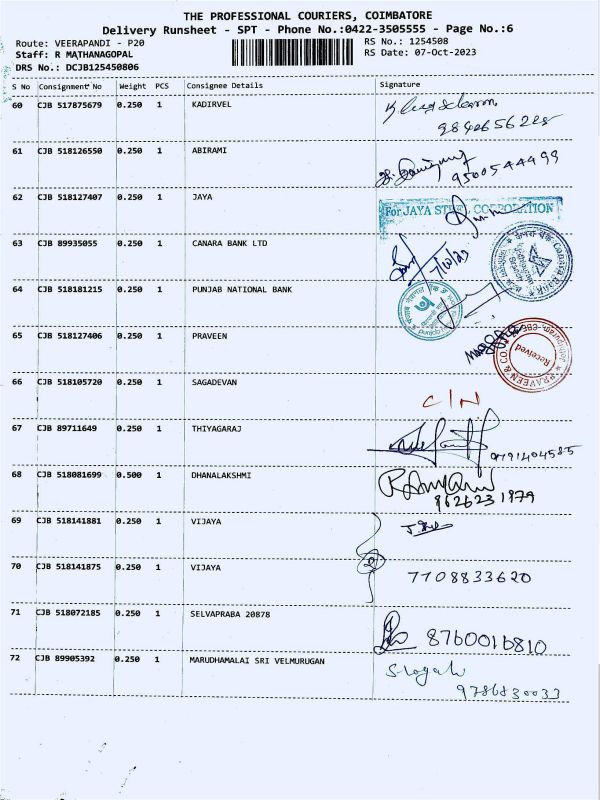 THE PROFESSIONAL COURIERS, COIMBATORE
Delivery Runsheet - SPT - Phone No.:0422-3505555 - Page No.:6
Route: VEERAPANDI - P20
Staff: R MATHANAGOPAL
DRS No.: DCJB125450806
RS No.: 1254508
RS Date: 07-Oct-2023
S No Consignment No Weight PCS Consignee Details Signature
60 CJB 517875679 0.250 1 KADIRVEL
61 CJB 518126550 0.250 1 ABIRAMI
9500544499
62 CJB 518127407 0.250 1 JAYA
For JAYA STEEL CORPORATION
63 CJB 89935055 0.250 1 CANARA BANK LTD
7/10/23
64 CJB 518181215 0.250 1 PUNJAB NATIONAL BANK
65 CJB 518127406 0.250 1 PRAVEEN
PRAVEEN & CO
Received
66 CJB 518105720 0.250 1 SAGADEVAN
C/N
67 CJB 89711649 0.250 1 THIYAGARAJ
9791404585
68 CJB 518081699 0.500 1 DHANALAKSHMI
9626231979
69 CJB 518141881 0.250 1 VIJAYA
70 CJB 518141875 0.250 1 VIJAYA
2
7708833620
71 CJB 518072185 0.250 1 SELVAPRABA 20878
8760016810
72 CJB 89905392 0.250 1 MARUDHAMALAI SRI VELMURUGAN
9786830033